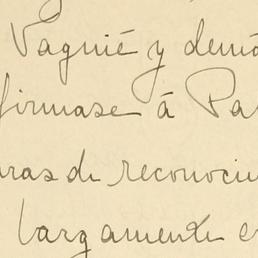 Vagnié y demá
firmase á Pa
ras de reconocim
largamente e